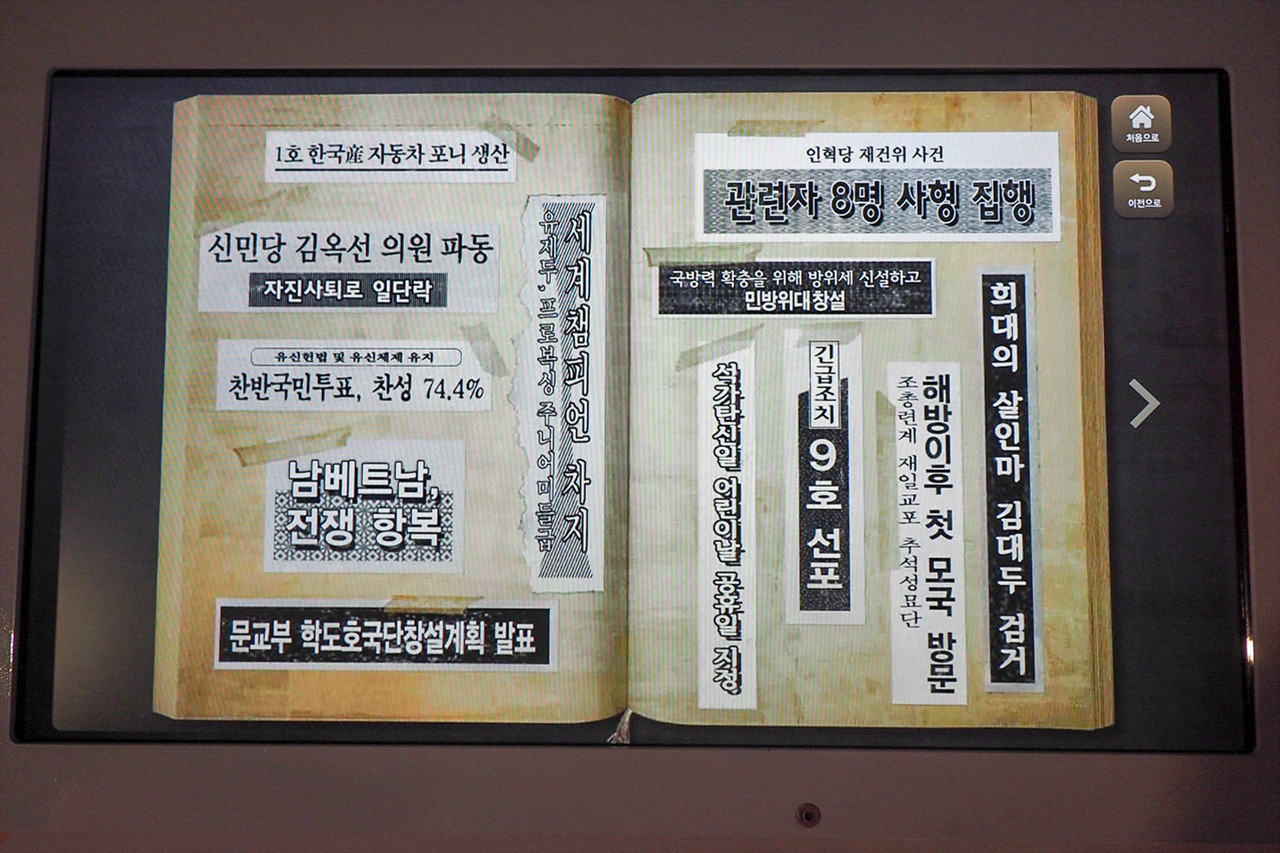 1호 한국産 자동차 포니 생산
신민당 김옥선 의원 파동
자진사퇴로 일단락
유신헌법 및 유신체제 유지
찬반국민투표, 찬성 74.4%
남베트남,
전쟁 항복
문교부 학도호국단창설계획 발표
세계챔피언 차지
유지두, 프로복싱 주니어미들급
인혁당 재건위 사건
관련자 8명 사형 집행
국방력 확충을 위해 방위세 신설하고
민방위대창설
석가탄신일 어린이날 공휴일 지정
긴급조치
9호 선포
해방이후 첫 모국 방문
조총련계 재일교포 추석성묘단
희대의 살인마 김대두 검거
처음으로
이전으로